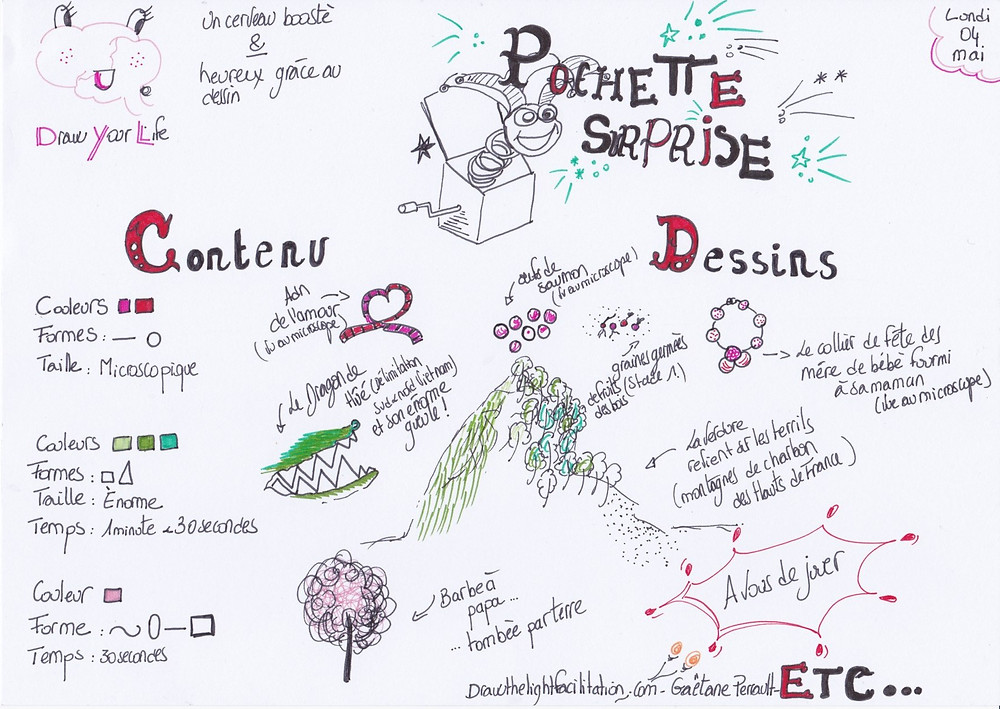 Un cerveau boosté
&
heureux grâce au
dessin
Draw Your Life
POCHETTE
SURPRISE
Lundi
04
mai
Contenu
Couleurs
Formes :
Taille : Microscopique
Couleurs
Formes
Taille : Énorme
Temps : 1 minute 30 secondes
Couleur
Forme :
Temps : 30 secondes
Dessins
Adn
de l'amour
(vu au microscope)
oeufs de
saumon
(vu au microscope)
graines germées
de fruits (stade 1.)
des bois
Le collier de fête des
mère de bébé fourmi
à sa maman
(vue au microscope)
Le Dragon de
Hué (délimitation
sud & nord Vietnam)
et son énorme
gueule !
La verdure
revient sur les terrils
(montagnes de charbon
des Hauts de France)
Barbe à
papa...
... tombée par terre
A vous de jouer
ETC...
Drawthelightfacilitation.com - Gaëtane Perrault -